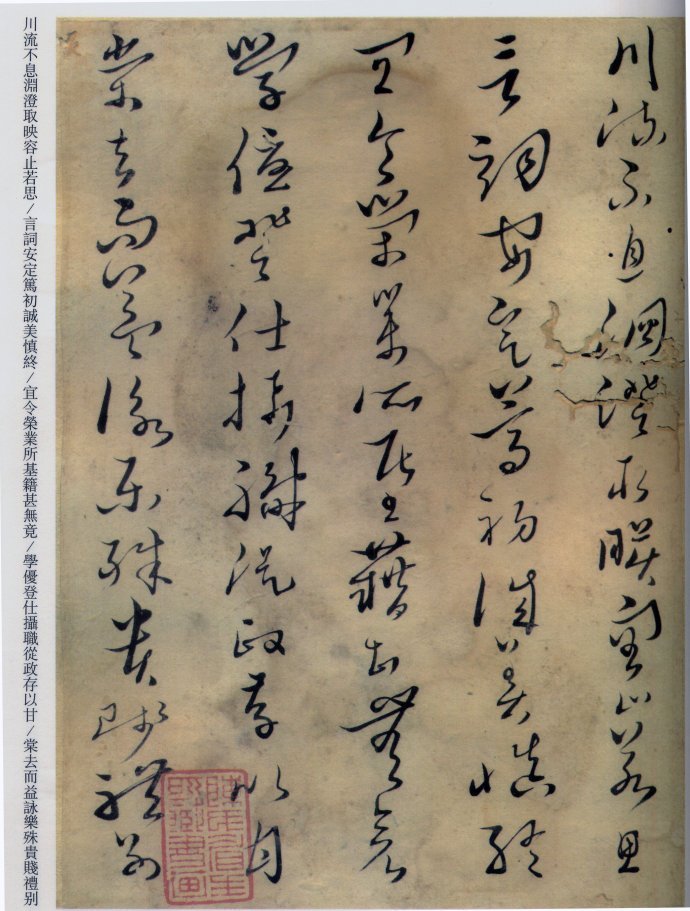 川流不息淵澄取映容止若思
言詞安定篤初誠美慎終
宜令榮業所基籍甚無竟
學優登仕攝職從政存以甘
棠去而益詠樂殊貴賤禮別
川流不息淵澄取映容止若思/言詞安定篤初誠美慎終/宜令榮業所基籍甚無竟/學優登仕攝職從政存以甘/棠去而益詠樂殊貴賤禮別